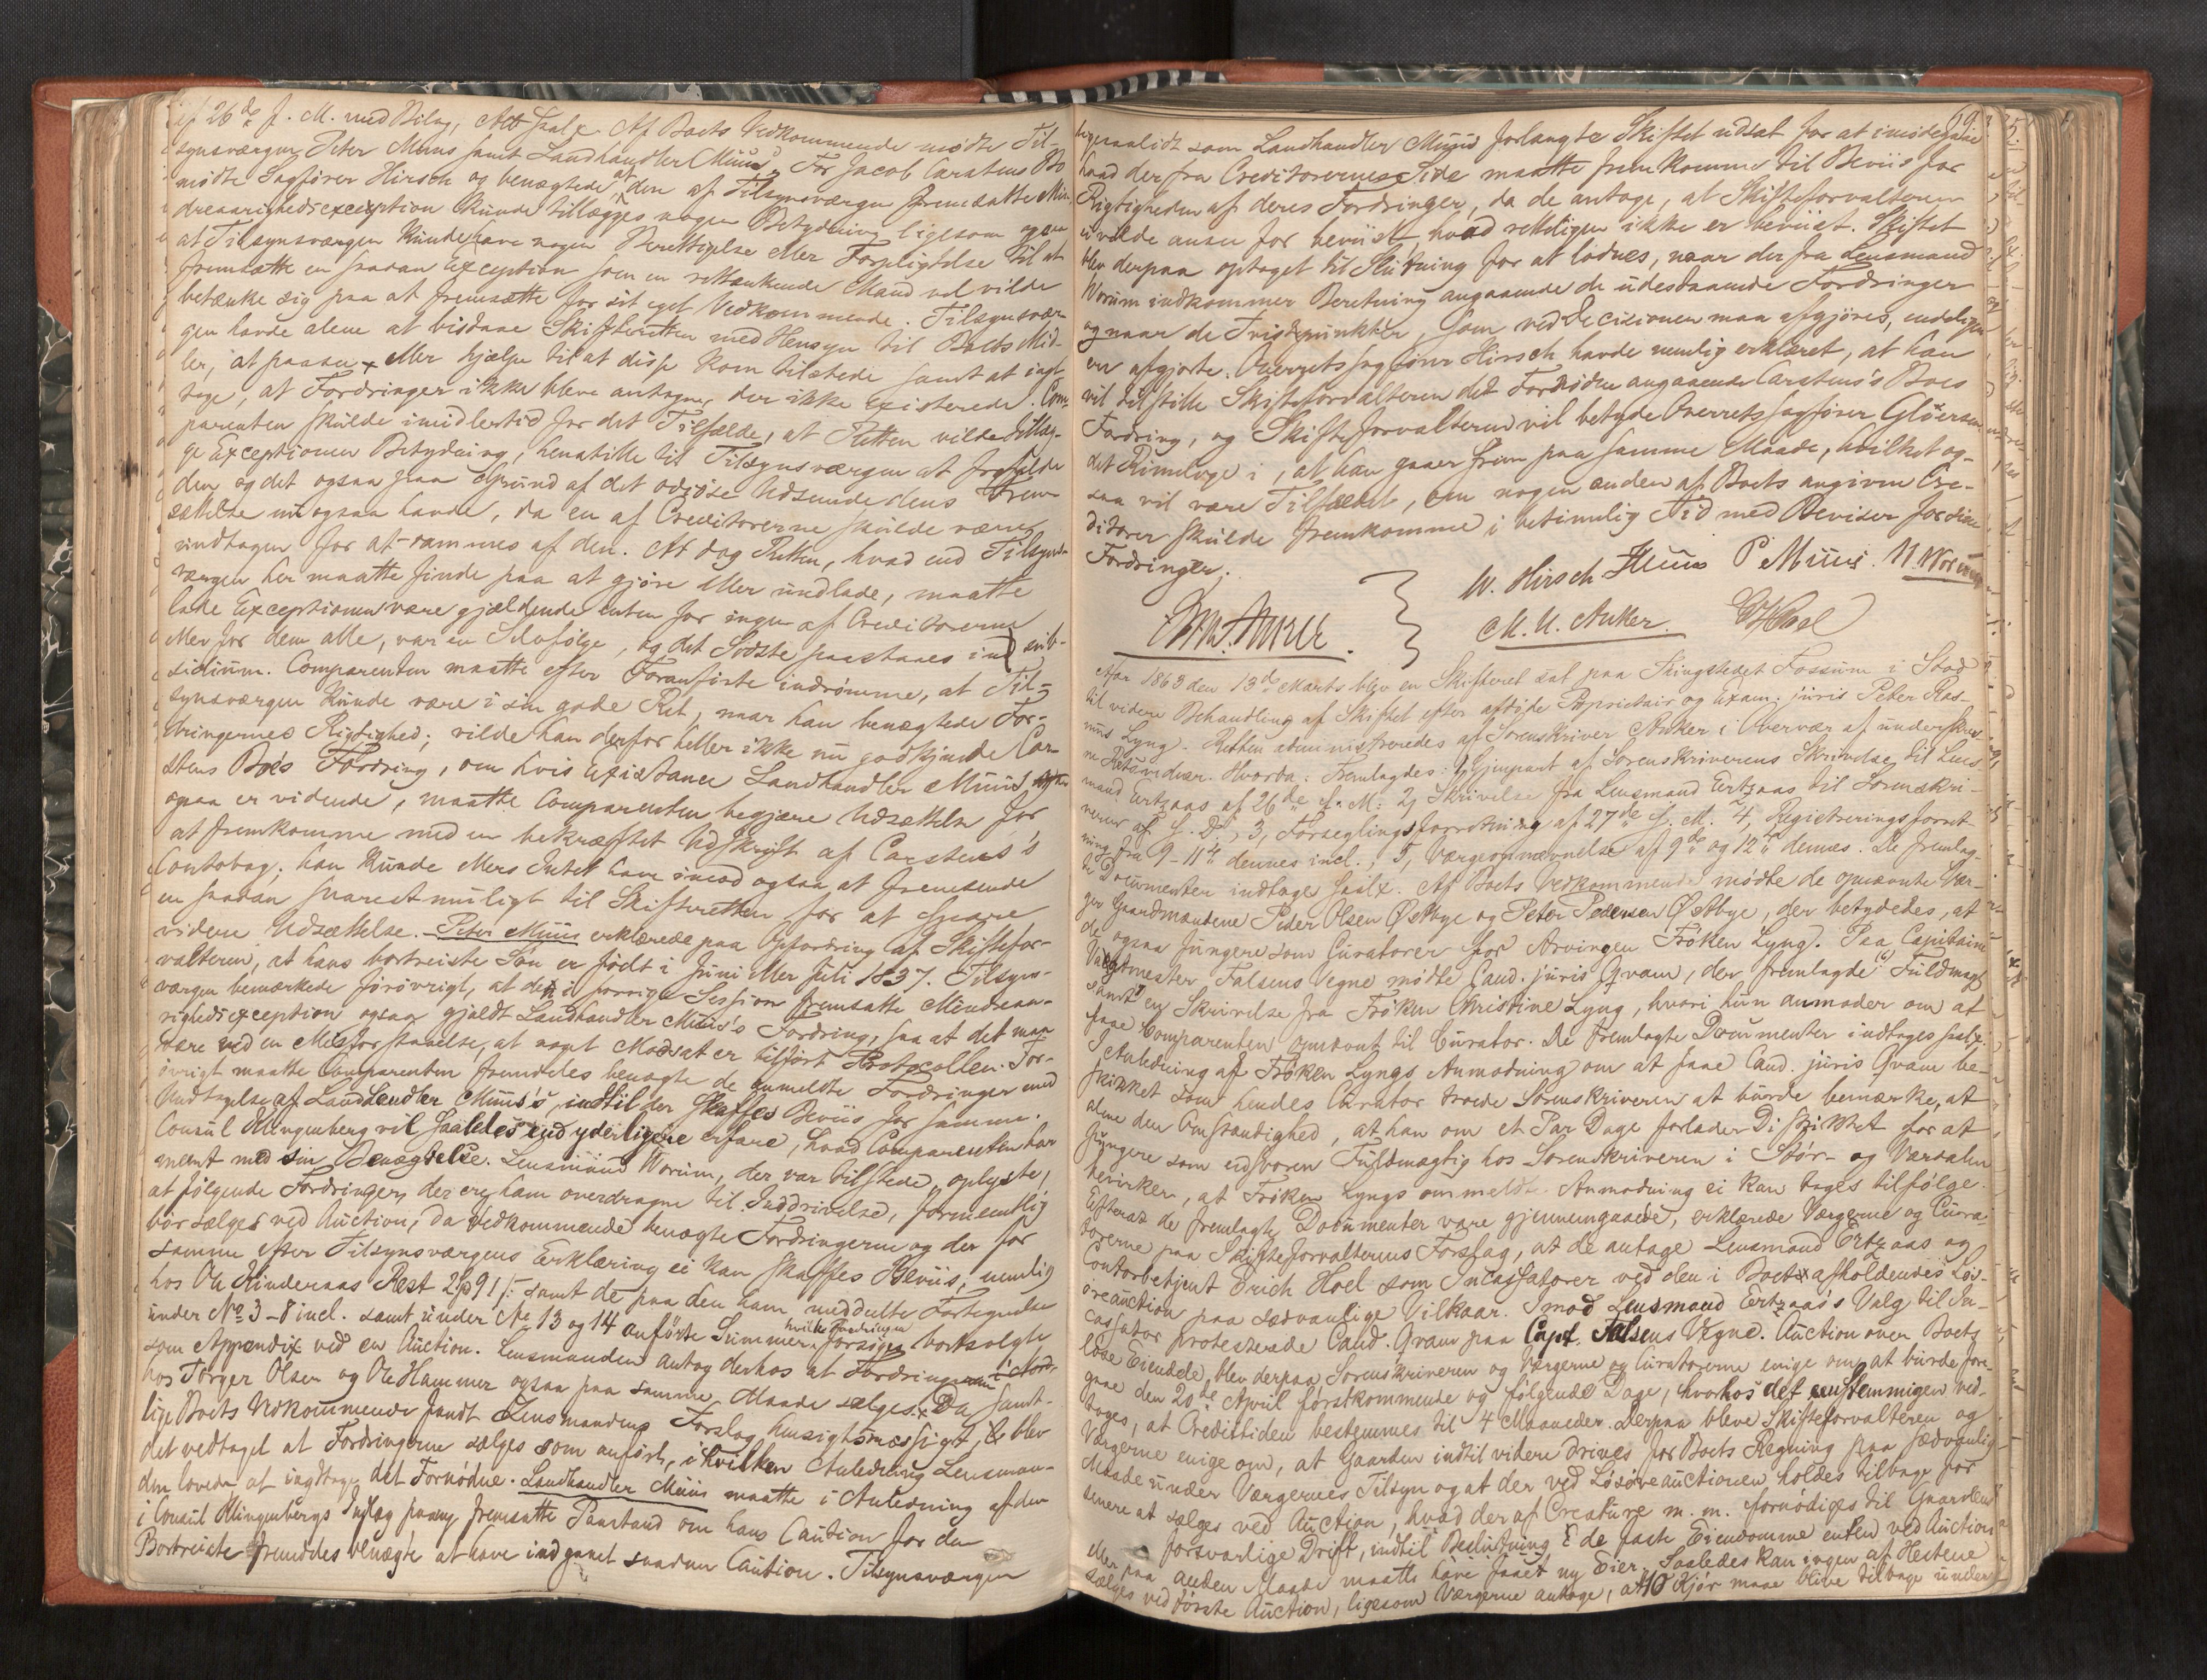 af 26de f. M. med Bilag, Alt saal. Af Boets Vedkommende mødte Til-
synsværgen Peter Muus samt Landhandler Muus. For Jacob Carstens Bo
mødte Sagfører Hirsch og benægtede at den af Tilsynsværgen fremsatte Min-
dreaarighedsexception kunde tillægges nogen Betydning ligesom
at Tilsynsværgen kunde have nogen Berettigelse eller Forpligtelse til at
fremsætte en saadan Exception som en rettænkende Mand vel vilde
betænke sig paa at fremsætte for sit eget Vedkommende. Tilsynsvær-
gen havde alene at bistaae Skifteretten med Hensyn til Boets Mid-
ler, at paasee eller hjælpe til at disse kom tilstede samt at iagt-
tage, at Fordringer ikke bleve antagne, der ikke existerede. Com-
parenten skulde imidlertid for det Tilfælde, at Retten vilde tillæg-
ge Exceptionen Betydning, henstille til Tilsynsværgen at frafalde
den og det ogsaa paa Grund af det odiøse Udseende dens Frem-
sættelse nu ogsaa havde, da en af Creditorerne skulde være
undtagen for at rammes af den. At dog Retten, hvad end Tilsyns-
værgen her maatte finde paa at gjøre eller undlade, maatte
lade Exceptionen være gjældende enten for ingen af Creditorerne
eller for dem alle, var en Selvfølge, og det Sidste paastaaes in sub-
sidium. Comparenten maatte efter Foranførte indrømme, at Til-
synsværgen kunde være i sin gode Ret, naar han benægtede For-
dringernes Rigtighed; vilde han derfor heller ikke nu godkjende Car-
stens Bo's Fordring, om hvis Existance Landhandler Muus
ogsaa er vidende, maatte Comparenten begjære Udsættelse for
at fremkomme med en bekræftet Udskrift af Carstens's
Contobog; han kunde ellers Intet have imod ogsaa at fremsende
en saadan snarest muligt til Skifteretten for at spare
videre Udsættelse. Peter Muus erklærede paa Opfordring af Skiftefor-
valteren, at hans bortreiste Søn er født i Juni eller Juli 1837. Tilsyns-
værgen bemærkede forøvrigt, at den i forrige Session fremsatte Mindreaa-
righedsexception ogsaa gjaldt Landhandler Muus's Fordring, saa at det maa
være ved en Misforstaaelse, at noget Modsat er tilført Protocollen. For-
øvrigt maatte Comparenten fremdeles benægte de anmeldte Fordringer med
Undtagelse af Landhandler Muus's, indtil der skaffes Beviis for samme.
Consul Klingenberg vil saaledes end yderligere erfare, hvad Comparenten har
meent med sin Benægtelse. Lensmand Worum, der var tilstede, oplyste,
at følgende Fordringer, der ere ham overdragne til Inddrivelse, formentlig
bør sælges ved Auction, da Vedkommende benægte Fordringerne og der for
samme efter Tilsynsværgens Erklæring ei kan skaffes Beviis, nemlig
hos Ole Kinderaas Rest 2 91 samt de paa den ham meddelte Fortegnelse
under No 3-8 incl. samt under No 13 og 14 anførte Summer hvilke Fordringer forsøges bortsolgte
som Appendix ved en Auction. Lensmanden antog derhos at Fordringerne
hos Torger Olsen og Ole Hammer ogsaa paa samme Maade sælges. Da samt-
lige Boets Vedkommende fandt Lensmandens Forslag hensigtsmæssigt, blev
det vedtaget at Fordringerne sælges som anført, i hvilken Anledning Lensman-
den lovede at iagttage det Fornødne. Landhandler Muus maatte i Anledning af den
i Consul Klingenbergs Indlæg paany fremsatte Paastand om hans Caution for den
Bortreiste fremdeles benægte at have indgaaet saadan Caution. Tilsynsværgen
som Landhandler Muus forlangte Skiftet udsat for at imødegaae
hvad der fra Creditorernes Side maatte fremkomme til Beviis for
Rigtigheden af deres Fordringer, da de antage, at Skifteforvalteren
ei vilde ansee for beviist, hvad retteligen ikke er beviist. Skiftet
blev derpaa optaget til Slutning for at loddes, naar der fra Lensmand
Worum indkommer Beretning angaaende de udestaaende Fordringer
og naar de Tvistpunkter, som ved Decisionen maa afgjøres, endeligen
ere afgjorte. Overretssagfører Hirsch havde nemlig erklæret, at han
vil tilstille Skifteforvalteren det Fornødne angaaende Carstens's Boes
Fordring, og Skifteforvalteren vil betyde Overretssagfører Gløersen
det Rimelige i, at han gaaer frem paa samme Maade, hvilket og-
saa vil være Tilfældet, om nogen anden af Boets angivne Cre-
ditorer skulde fremkomme i betimelig Tid med Beviser for sine
Fordringer.
W. Hirsch Muus P Muus. N. Worum
M. U. Anker. EHoel
Aar 1863 den 13de Marts blev en Skifteret sat paa Thingstedet Fossum i Stod
til videre Behandling af Skiftet efter afdøde Proprietair og Exam. juris Peter Ras-
mus Lyng. Retten administreredes af Sorenskriver Anker i Overvær af underskrev-
ne Retsvidner. Hvorda: Fremlagdes: 1, Gjenpart af Sorenskriverens Skrivelse til Lens-
mand Ertzaas af 26de f. M: 2, Skrivelse fra Lensmand Ertzaas til Sorenskri-
veren af s. D., 3, Forseglingsforretning af 27de f. M. 4, Registreringsforret-
ning fra 9-11te dennes incl., 5, Værgeopnævnelse af 9de og 12te dennes. De fremlag-
te Documenter indtages saal. Af Boets Vedkommende mødte de opnævnte Vær-
ger Gaardmændene Peder Olsen Østbye og Peter Pedersen Østbye, der betydedes, at
de ogsaa fungere som Curatorer for Arvingen Frøken Lyng. Paa Capitaine
Vagtmester Falsens Vegne mødte Cand. juris Qvam, der fremlagde (6) Fuldmagt
samt 7 en Skrivelse fra Frøken Christine Lyng, hvori hun anmoder om at
faae Comparenten opnævnt til Curator. De fremlagte Documenter indtages saal.
I Anledning af Frøken Lyngs Anmodning om at faae Cand. juris Qvam be-
skikket som hendes Curator troede Sorenskriveren at burde bemærke, at
alene den Omstændighed, at han om et Par Dage forlader Distriktet for at
fungere som eedsvoren Fuldmægtig hos Sorenskriveren i Stør- og Værdalen
bevirker, at Frøken Lyngs ommeldte Anmodning ei kan tages tilfølge.
Efterat de fremlagte Documenter vare gjennemgaaede, erklærede Værgerne og Cura-
torerne paa Skifteforvalterens Forslag, at de antage Lensmand Ertzaas og
Contorbetjent Erich Hoel som Incassatorer ved den i Boet afholdendes Løs-
øreauction paa sædvanlige Vilkaar. Imod Lensmand Ertzaas's Valg til In-
cassator protesterede Cand. Qvam paa Capt. Falsens Vegne. Auction over Boets
løse Eiendele, blev derpaa Sorenskriveren og Værgerne og Curatorerne enige om at burde fore-
gaae den 20de April førstkommende og følgende Dage, hvorhos det eenstemmigen ved-
toges, at Credittiden bestemmes til 4 Maaneder. Derpaa bleve Skifteforvalteren og
Værgerne enige om, at Gaarden indtil videre drives for Boets Regning paa sædvanlig
Maade under Værgernes Tilsyn og at der ved Løsøreauctionen holdes tilbage for
senere at sælges ved Auction, hvad der af Creature m. m. fornødiges til Gaardens
forsvarlige Drift, indtil Beslutning de faste Eiendomme enten ved Auction
eller paa anden Maade maatte have faaet ny Eier. Saaledes kan ingen af Hestene
sælges ved første Auction, ligesom Værgerne antage, at 10 Kjør maae blive tilbage under